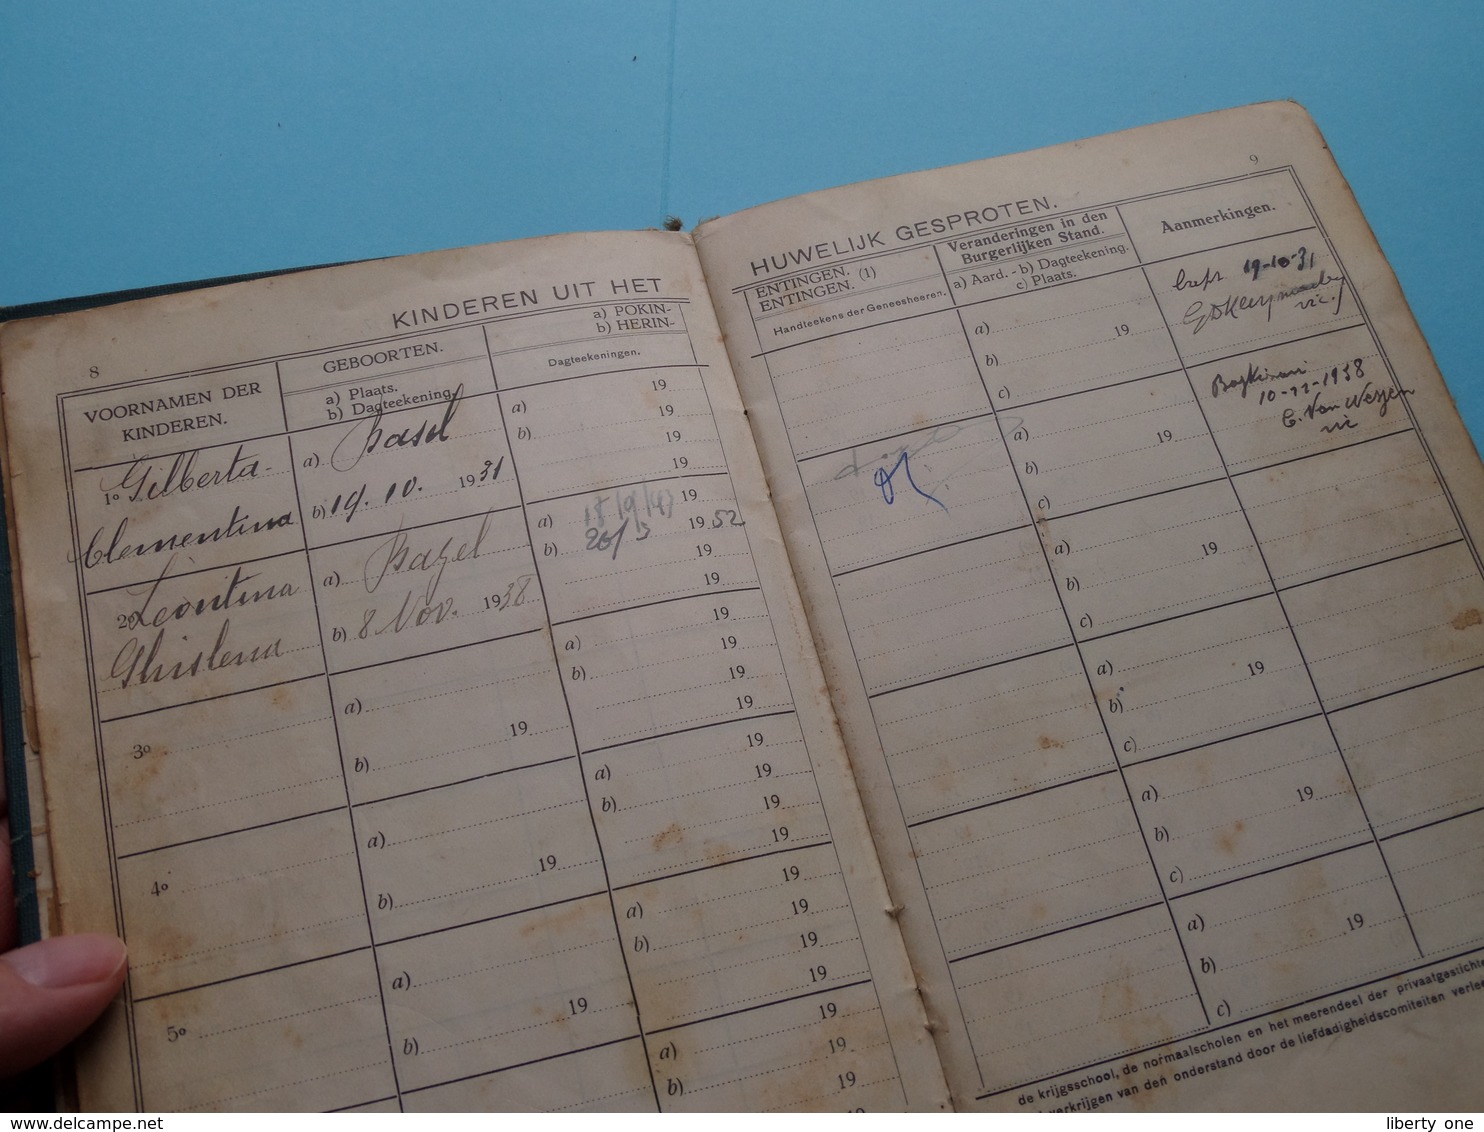 8
KINDEREN UIT HET
VOORNAMEN DER
KINDEREN.
GEBOORTEN.
a) Plaats.
b) Dagteekening.
a) POKIN-
b) HERIN-
Dagteekeningen.
1o Gilberta-
Clementina
a) Basel
b) 19. 10. 1931
a) 19
b) 19
19
19
2o Leontina
Ghislena
a) Bazel
b) 8 Nov. 1938
19
a) 18/9/43 1952
b) 26/3 19
19
3o
a)
b) 19
19
a) 19
b) 19
19
4o
a)
b) 19
19
a) 19
b) 19
19
5o
a)
b) 19
19
a) 19
b) 19
19
19
a) 19
b) 19
9
HUWELIJK GESPROTEN.
ENTINGEN.
ENTINGEN. (1)
Handteekens der Geneesheeren.
Veranderingen in den
Burgerlijken Stand.
a) Aard. - b) Dagteekening.
c) Plaats.
Aanmerkingen.
a)
b) 19
c)
19-10-31
vic.
a)
b) 19
c)
10-11-1938
vic
a)
b) 19
c)
a)
b) 19
c)
a)
b) 19
c)
a)
b) 19
c)
de krijgsschool, de normaalscholen en het meerendeel der privaatgestichte
verkrijgen van den onderstand door de liefdadigheidscomiteiten verlee
liberty one